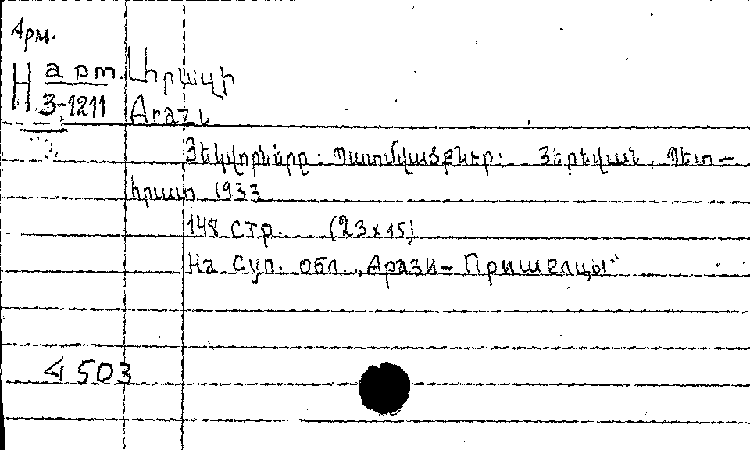 Арм.
H арт. Արազի
3-1211 Arazi
Եկվորները: Պատմվածքներ: Յերեվան, Պետ-
հրատ 1933
148 стр. (23х15)
На суп. обл. „Арази – Пришелцы“
4503